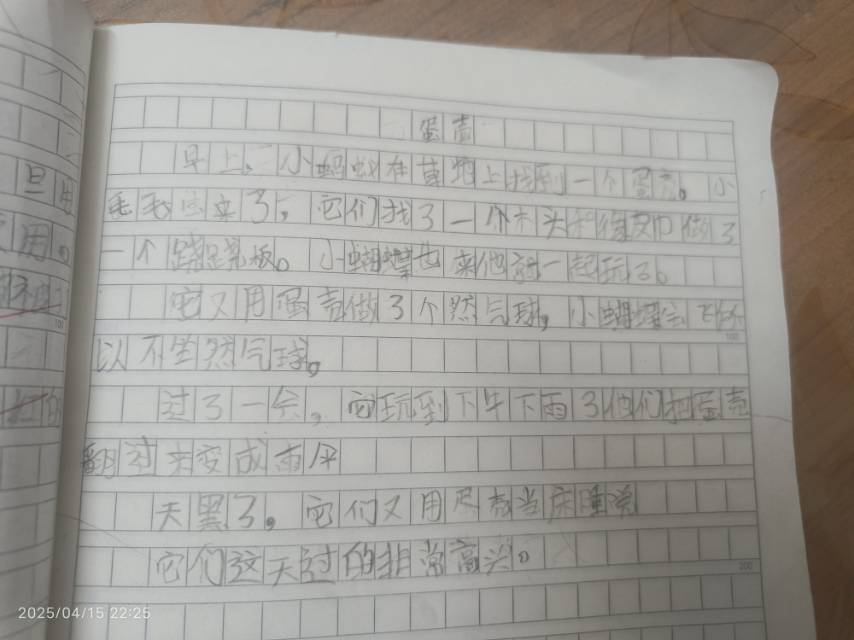 蛋壳
早上,小蚂蚁在草地上找到一个蛋壳。小
毛毛虫来了,它们找了一个木头和蛋壳做了
一个跷跷板。小蝴蝶也来他们一起玩了。
它又用蛋壳做了个然气球,小蝴蝶会飞所
以不坐然气球。
过了一会,它玩到下午下雨了他们把蛋壳
翻过来变成雨伞
天黑了,它们又用蛋壳当床睡觉
它们这天过的非常高兴。
旦用
用。
的
100
100
200
2025/04/15 22:25